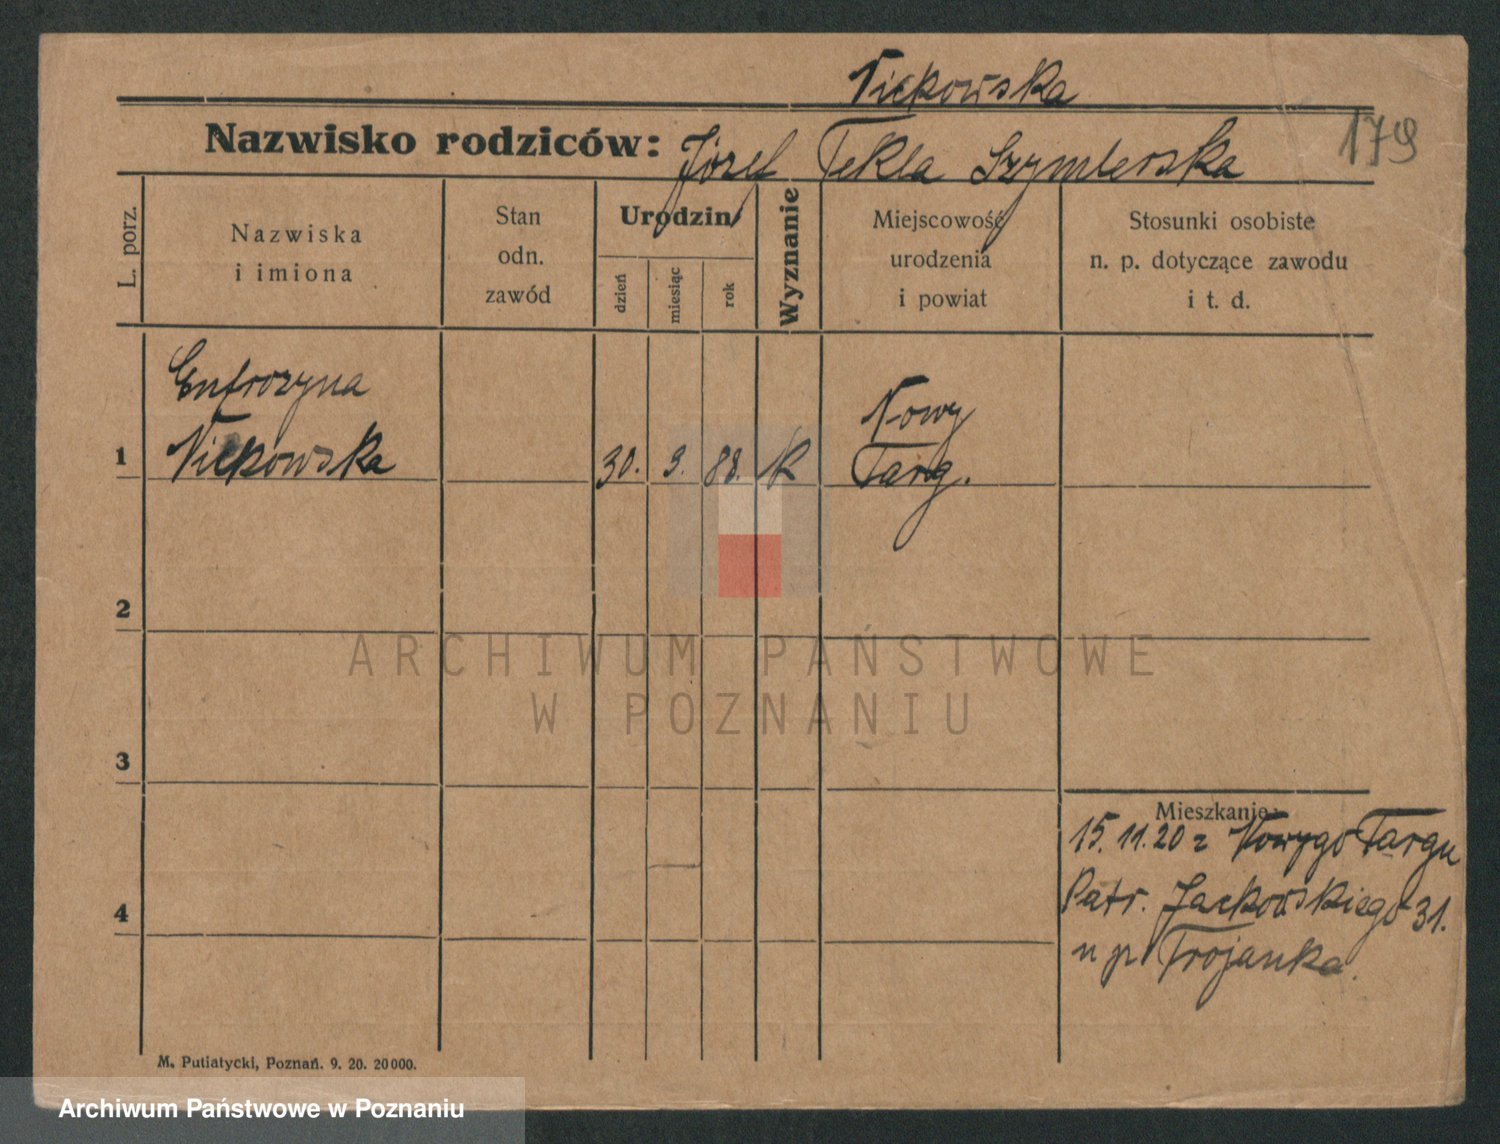 Vickowska
Nazwisko rodziców: Józef Tekla Szymlerska
179
L. porz.
Nazwiska
i imiona
Stan
odn.
zawód
Urodzin
dzień
miesiąc
rok
Wyznanie
Miejscowość
urodzenia
i powiat
Stosunki osobiste
n. p. dotyczące zawodu
i t. d.
Eufrozyna
1 Vickowska 30. 3. 88. K Nowy
Targ.
2
ARCHIWUM PAŃSTWOWE
W POZNANIU
3
Mieszkanie:
15.11.20 z Nowygo Targu
4 Patr. Jackowskiego 31.
u p. Trojanka.
M. Putiatycki, Poznań. 9. 20. 20000.
Archiwum Państwowe w Poznaniu